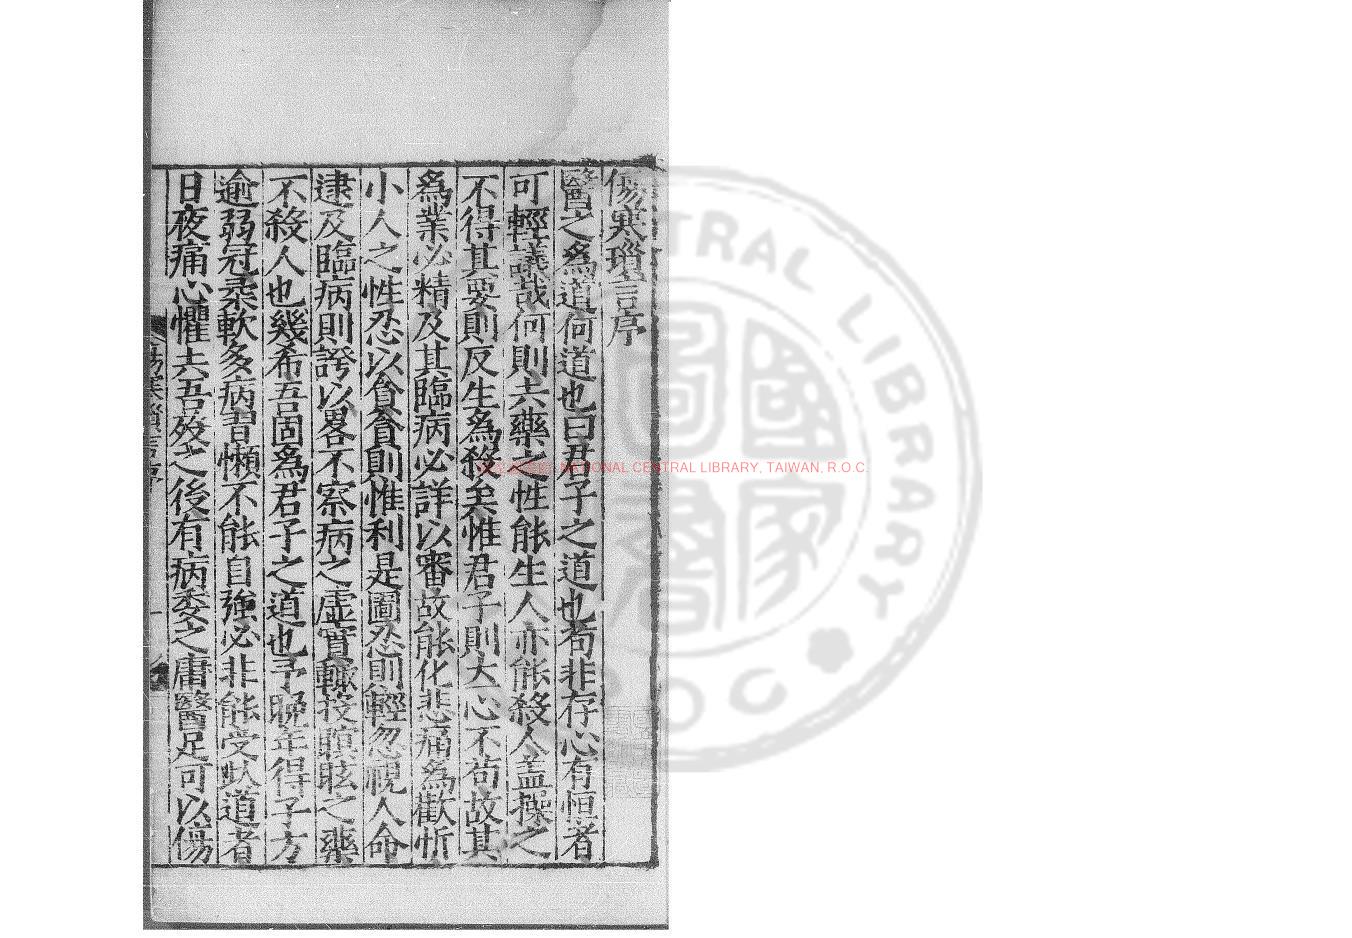 傷寒瑣言序
醫之爲道何道也曰君子之道也苟非存心有恒者
可輕議哉何則夫藥之性能生人亦能殺人盖操之
不得其要則反生爲殺矣惟君子則立心不苟故其
爲業必精及其臨病必詳以審故能化悲痛爲歡忻
小人之性忍以貪貪則惟利是圖忍則輕忽視人命
逮及臨病則誇以畧不察病之虛實輙投瞑眩之藥
不殺人也幾希吾固爲君子之道也予晚年得子方
逾弱冠柔軟多病習懶不能自強必非能受此道者
日夜痛心懼夫吾歿之後有病委之庸醫足可以傷
傷寒瑣言序
NATIONAL CENTRAL LIBRARY, TAIWAN, R.O.C.